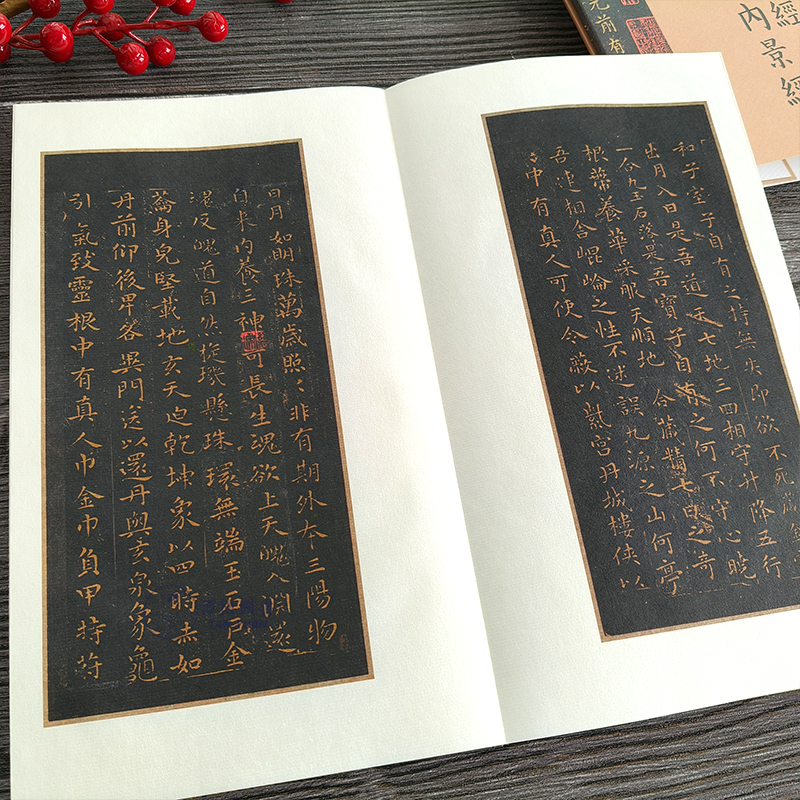 和子室子自有之持無失即欲不死藏
出月入日是吾道天七地三回相守升降五行
一合九玉石落是吾寶子自有之何不守心曉
根蒂養華采服天順地合藏精七日之奇
吾連相合崐崘之性不迷誤九源之山何亭
中有真人可使令蔽以紫宮丹城樓俠以
日月如明珠萬歲照〻非有期外本三陽物
自来内養三神可長生魂欲上天魄入淵還
魂反魄道自然旋璣懸珠環無端玉石戶金
籥身皃堅載地玄天迫乾坤象以四時赤如
丹前仰後卑各異門送以還丹與玄泉象龜
引氣致靈根中有真人巾金巾負甲持符
經
内景經
元前有